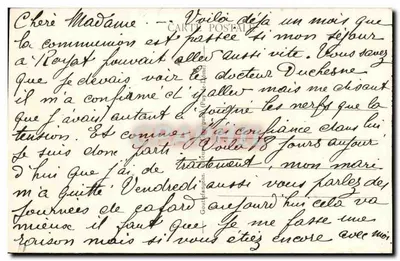 Chère Madame - Voilà déja un mois que
la communion est passée si mon séjour
à Royat pouvait aller aussi vite. Vous savez
que je devais voir le docteur Duchesne
il m'a confirmé et y aller mais me disant
que j'avais autant à soigner les nerfs que la
tension. Et comme j'ai confiance dans lui
je suis donc parti. Voilà 13 jours aujour
d'hui que j'ai de traitement, mon mari
m'a quitté Vendredi aussi vous parlez des
journées de cafard aujourd'hui cela va
mieux il faut que je me fasse une
raison mais si vous étiez encore avec moi
CARTE POSTALE